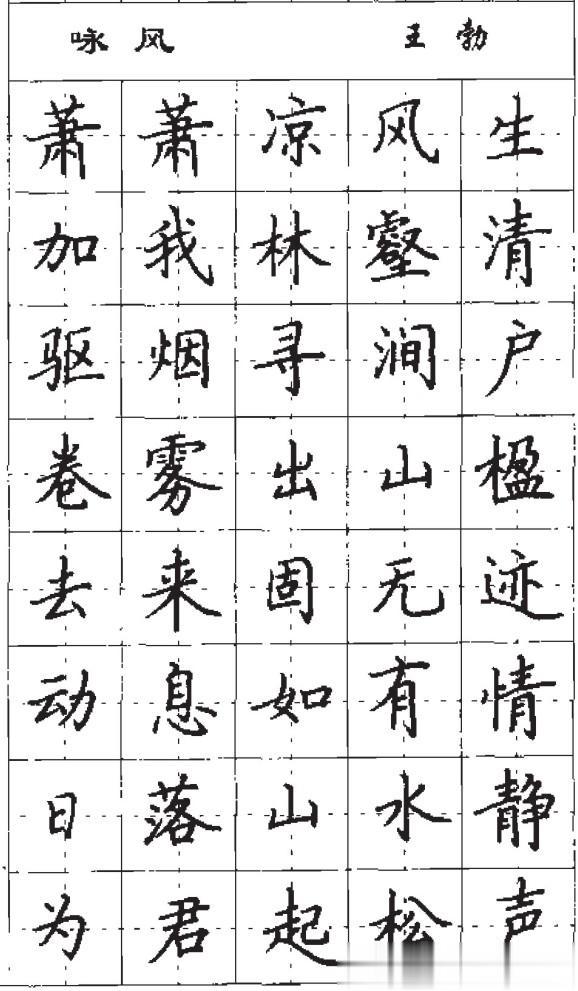 咏风 王勃
萧萧凉风生
加我林壑清
驱烟寻涧户
卷雾出山楹
去来固无迹
动息如有情
日落山水静
为君起松声